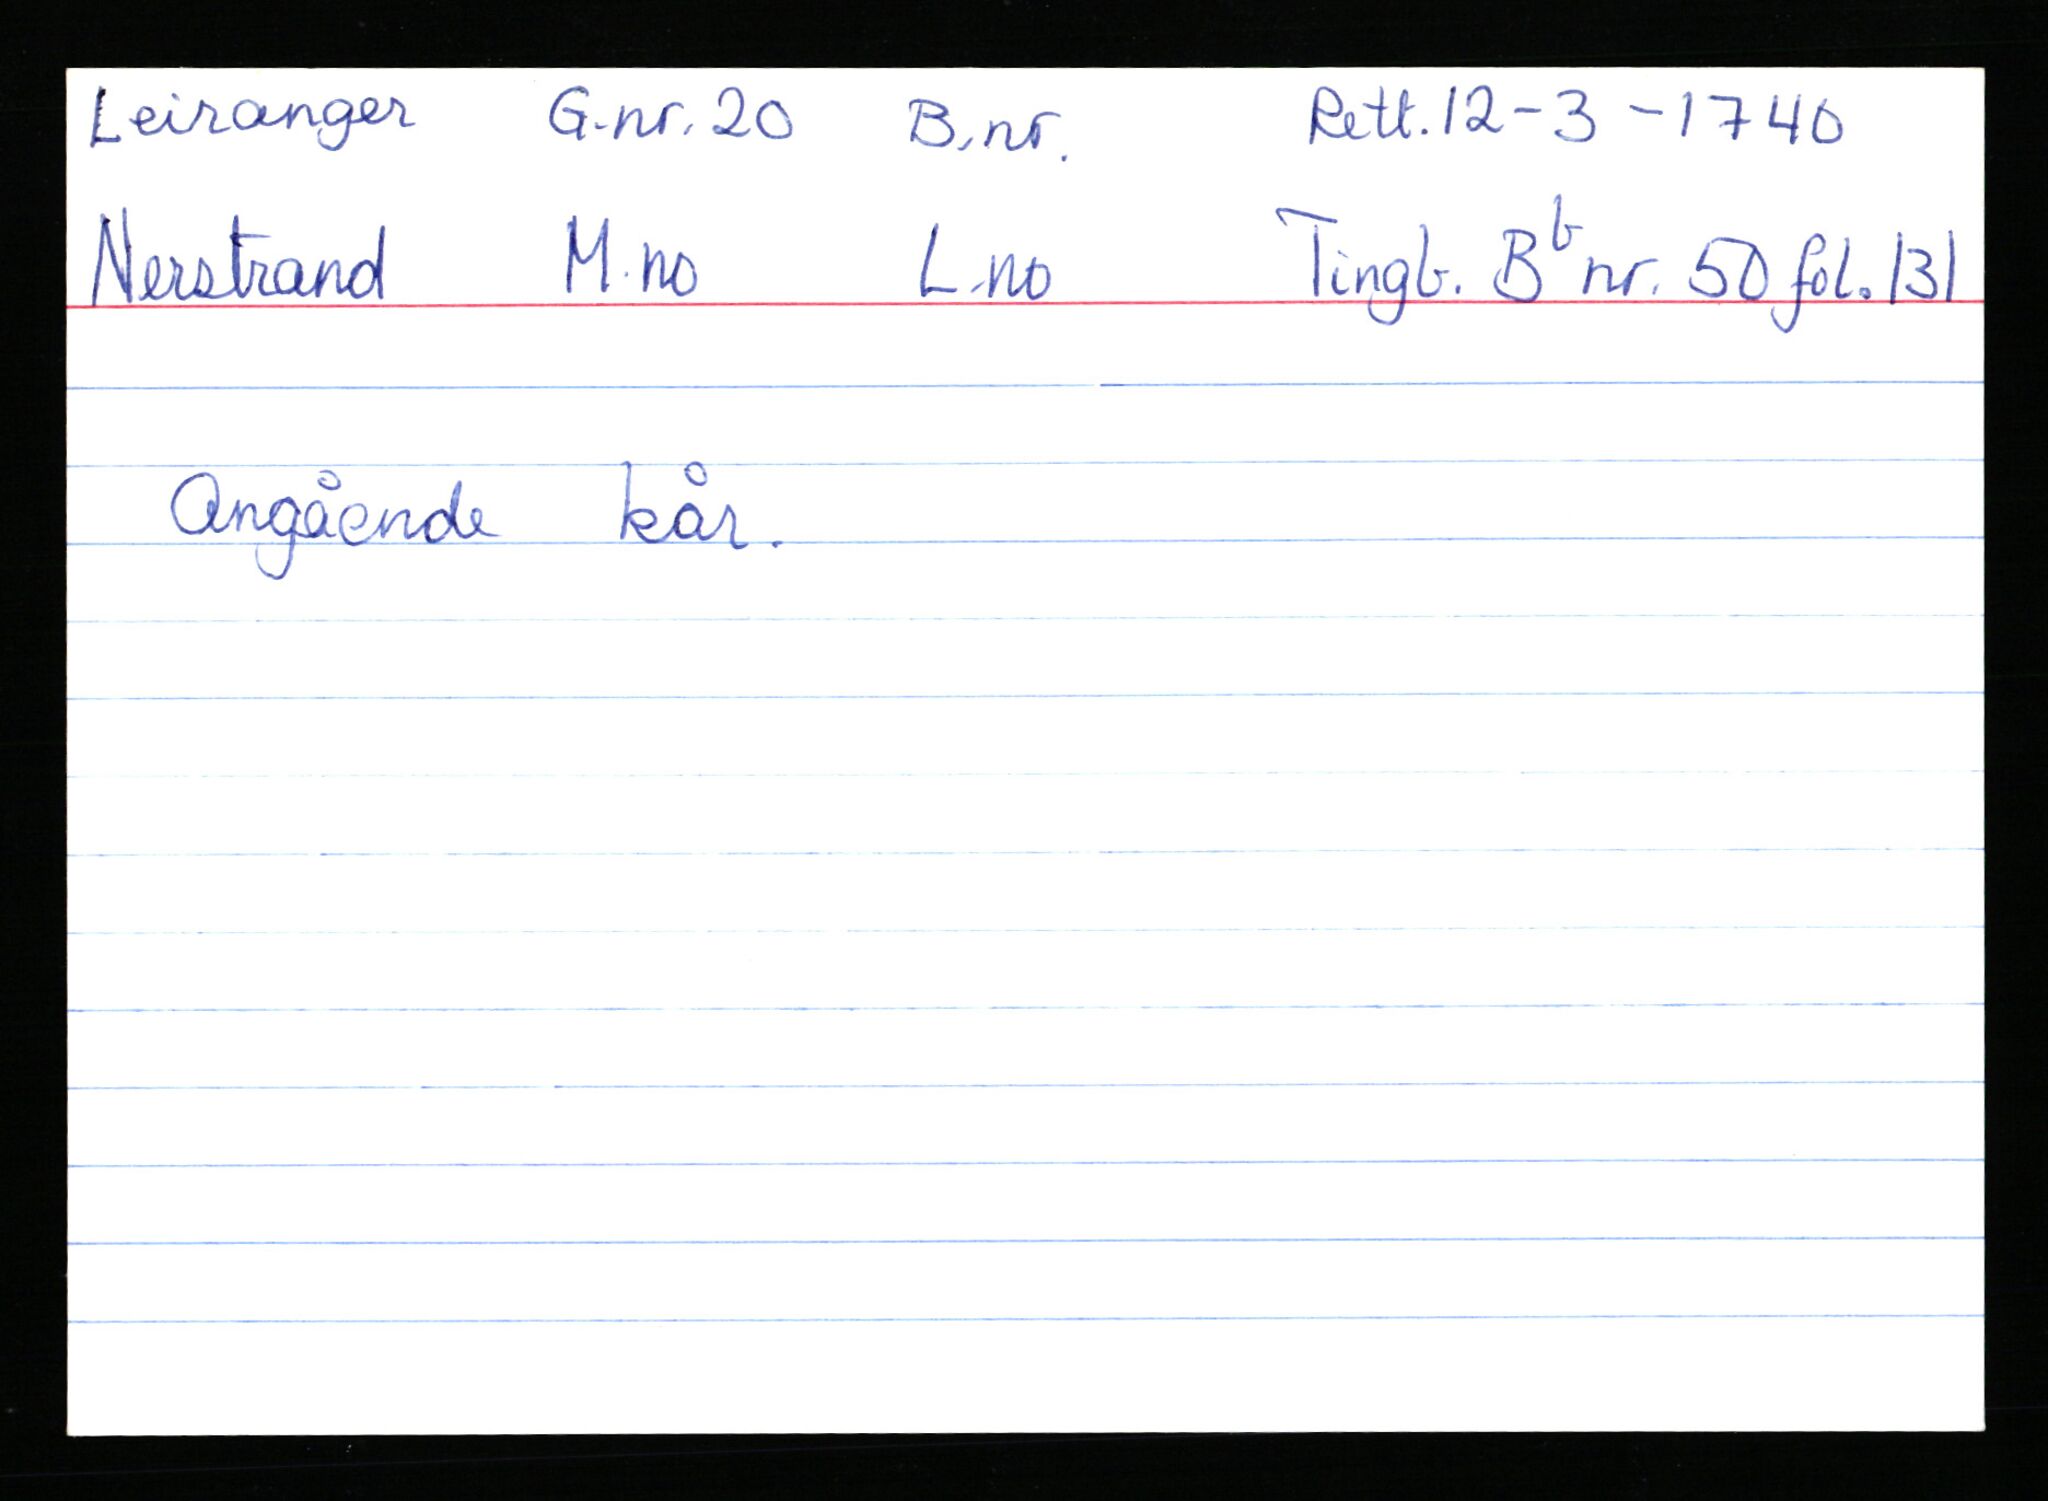 Leiranger G.nr. 20 B.nr. Rett. 12-3-1740
Nerstrand M.no L.no Tingb. Bb nr. 50 fol. 131
Angående kår.